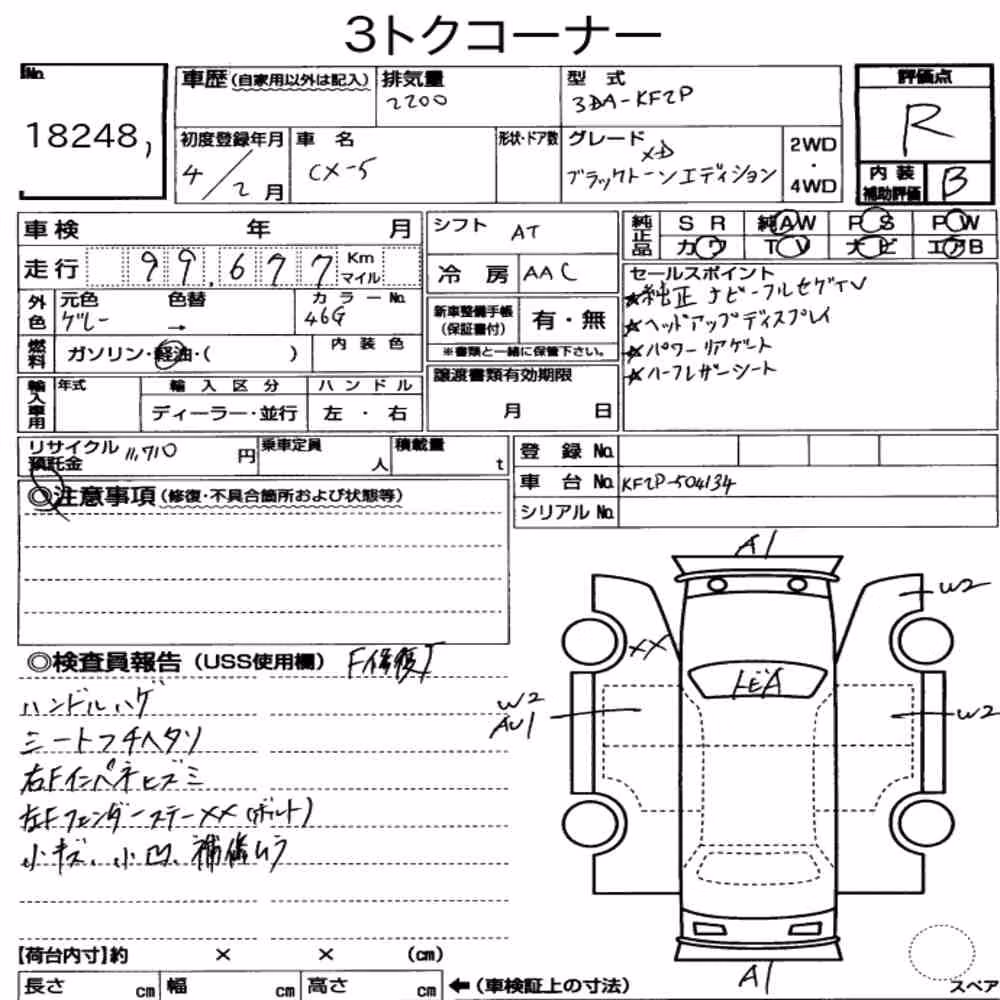 3トクコーナー
No.
18248,
車歴(自家用以外は記入)
排気量
2200
型 式
3DA-KF2P
評価点
R
初度登録年月
4/2月
車 名
CX-5
形状・ドア数
グレード
XD
ブラックトーンエディション
2WD
・
4WD
内 装
補助評価
B
車検 年 月
シフト AT
純正品
SR 純AW PS PW
カワ TV ナビ エアB
走行 99,677 Km マイル
冷 房 AAC
セールスポイント
★純正ナビ-フルセグTV
★ヘッドアップディスプレイ
★パワーリアゲート
★ハーフレザーシート
外色
元色 色替
グレー →
カラーNo.
46G
新車整備手帳
(保証書付)
有・無
※書類と一緒に保管下さい。
燃料
ガソリン・軽油・( )
内装色
譲渡書類有効期限
月 日
輸入車用
年式
輸入区分
ディーラー・並行
ハンドル
左・右
リサイクル
預託金
11,710円
乗車定員
人
積載量
t
登 録 No.
車 台 No. KF2P-504134
シリアル No.
◎注意事項(修復・不具合箇所および状態等)
◎検査員報告(USS使用欄) F修復了
ハンドルハゲ
シートフチヘタリ
右Fインペネヒズミ
左Fフェンダーステー××(ボルト)
小キズ、小凹、補修ムラ
A1
W2
XX
W2
AU1
W2
A1
【荷台内寸】約 × × (cm)
長さ cm 幅 cm 高さ cm
←(車検証上の寸法)
スペア